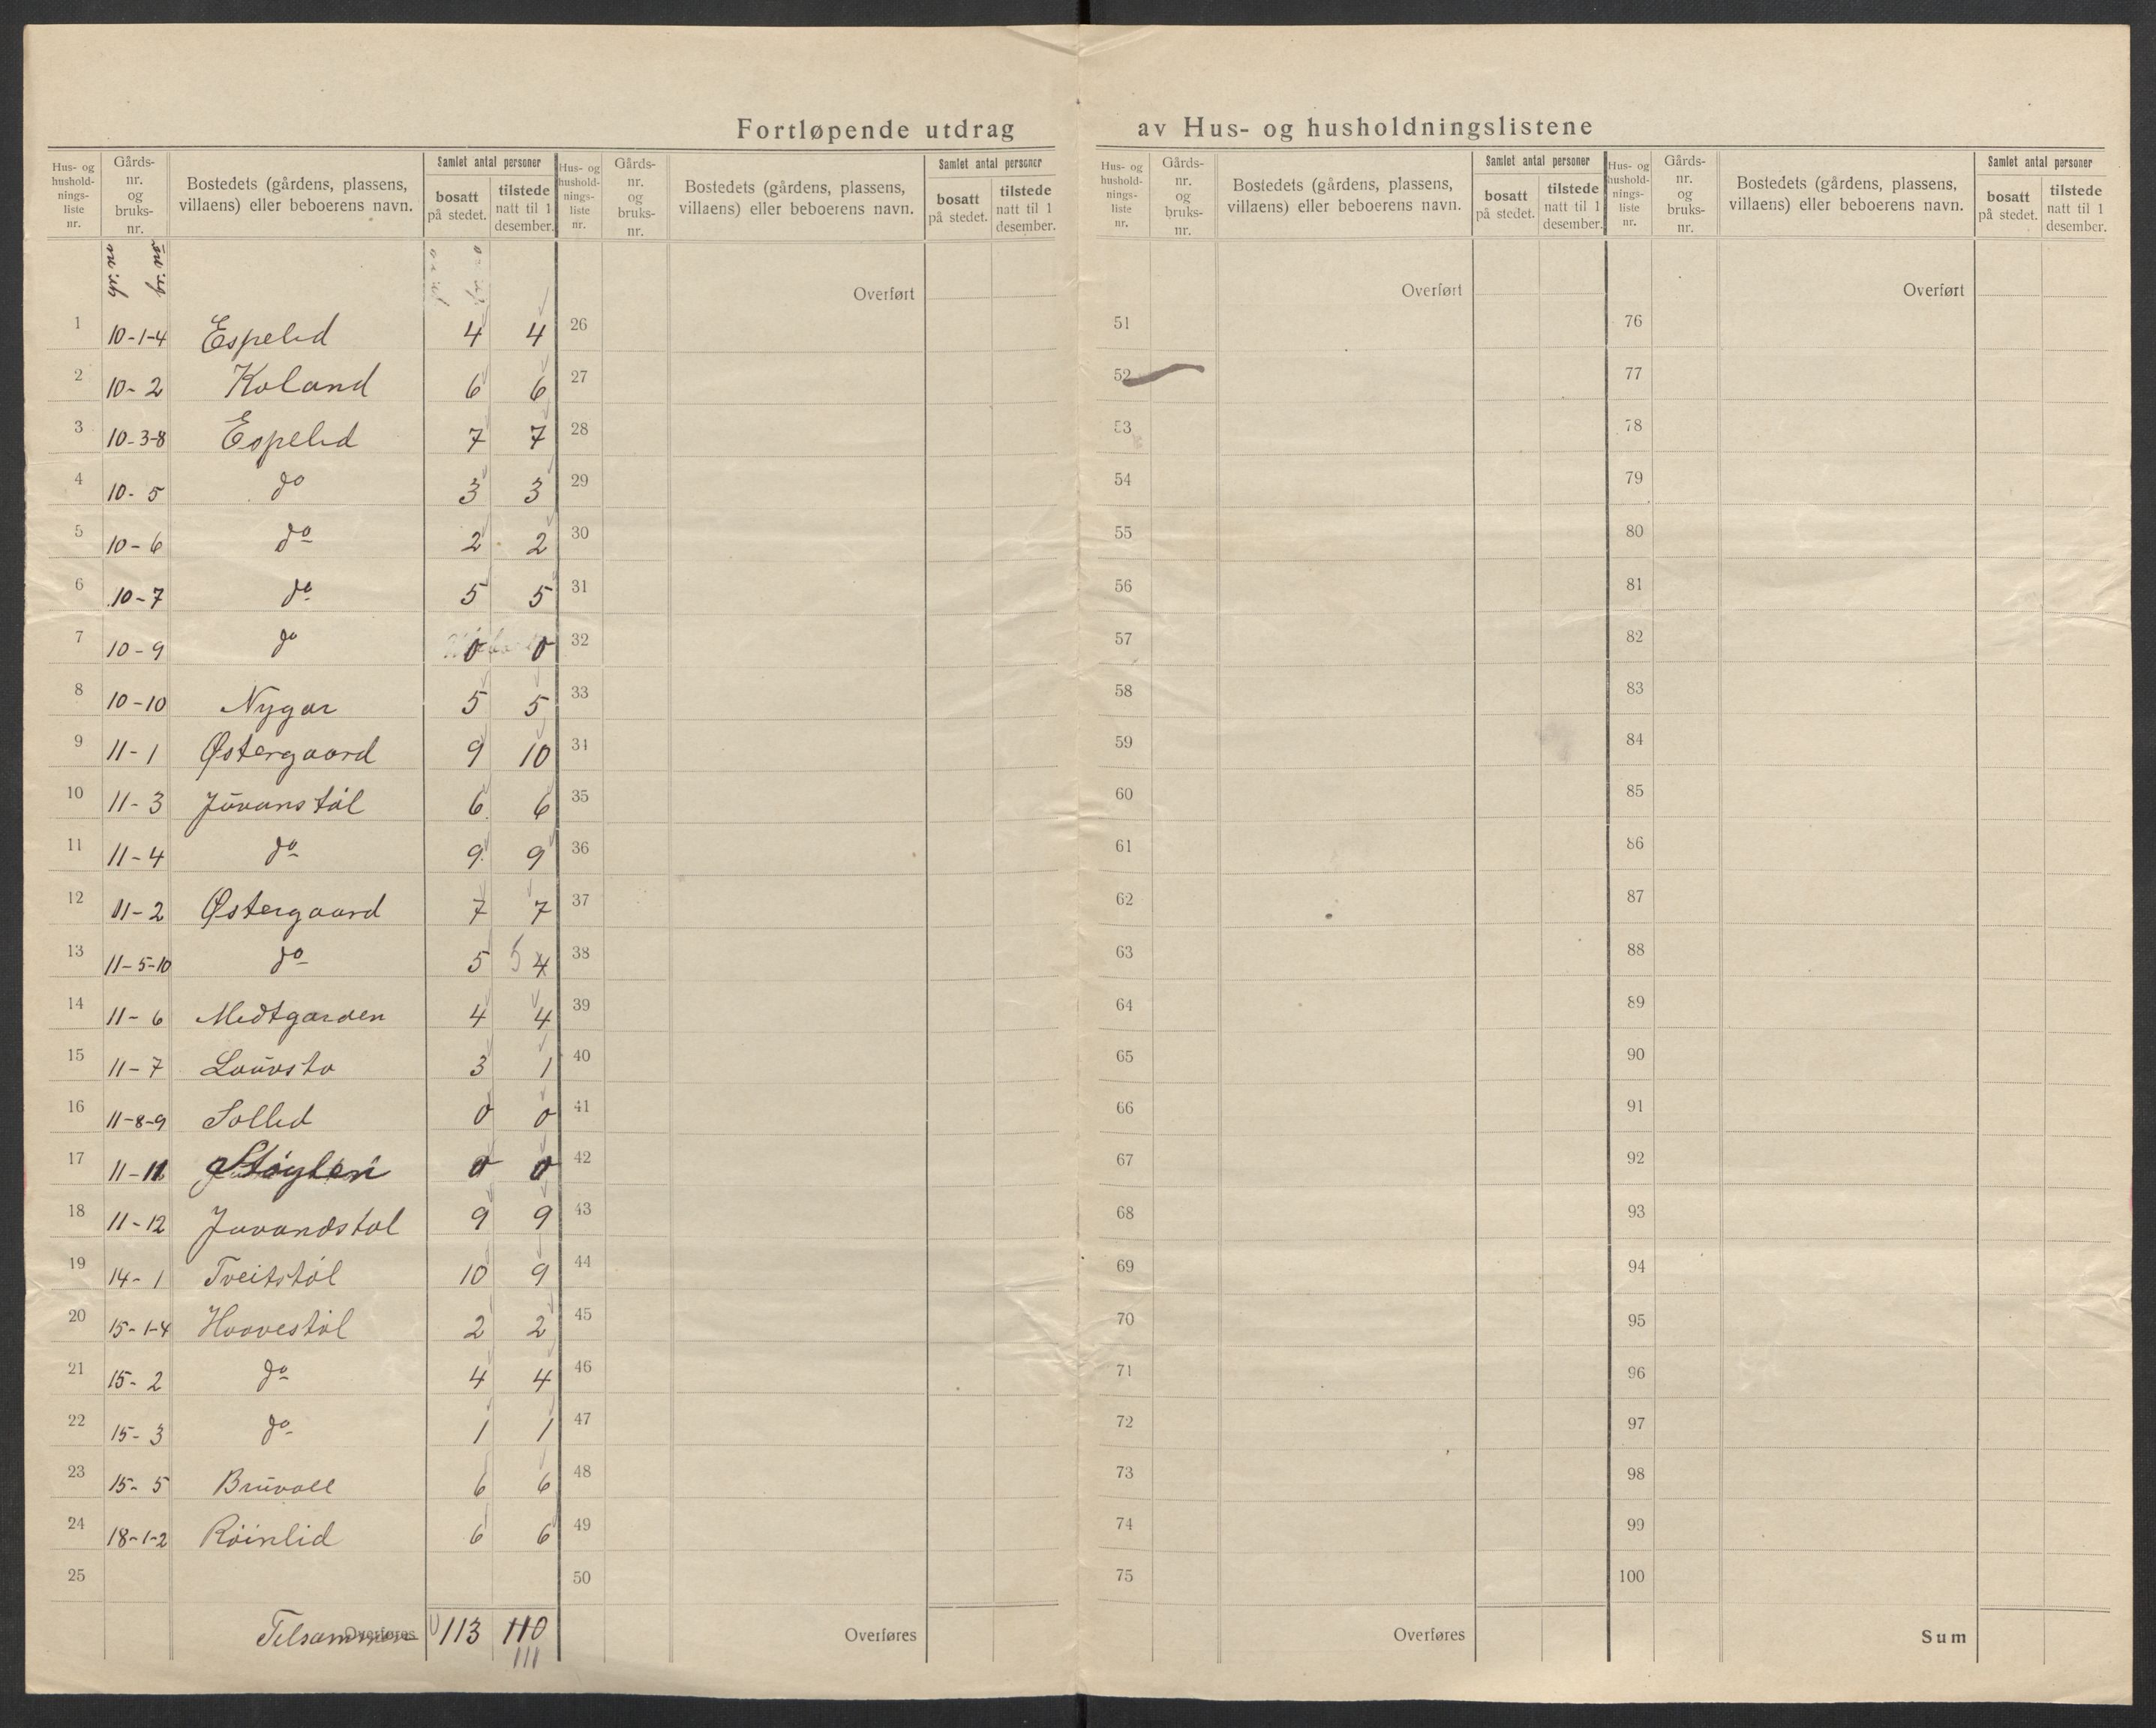 Fortløpende utdrag av Hus- og husholdningslistene
Hus- og hushold-nings-liste nr. | Gårds-nr. og bruks-nr. | Bostedets (gårdens, plassens, villaens) eller beboerens navn. | Samlet antal personer | bosatt på stedet. | tilstede natt til 1 desember.
Hus- og hushold-nings-liste nr. | Gårds-nr. og bruks-nr. | Bostedets (gårdens, plassens, villaens) eller beboerens navn. | Samlet antal personer | bosatt på stedet. | tilstede natt til 1 desember.
Hus- og hushold-nings-liste nr. | Gårds-nr. og bruks-nr. | Bostedets (gårdens, plassens, villaens) eller beboerens navn. | Samlet antal personer | bosatt på stedet. | tilstede natt til 1 desember.
Hus- og hushold-nings-liste nr. | Gårds-nr. og bruks-nr. | Bostedets (gårdens, plassens, villaens) eller beboerens navn. | Samlet antal personer | bosatt på stedet. | tilstede natt til 1 desember.
gr. no br. no
1 10-1-4 Espelid 4 4
2 10-2 Koland 6 6
3 10-3-8 Espelid 7 7
4 10-5 do 3 3
5 10-6 do 2 2
6 10-7 do 5 5
7 10-9 do 0 0
8 10-10 Nygar 5 5
9 11-1 Østergaard 9 10
10 11-3 Juvanstøl 6 6
11 11-4 do 9 9
12 11-2 Østergaard 7 7
13 11-5-10 do 5 5 4
14 11-6 Medtgarden 4 4
15 11-7 Lauvsto 3 1
16 11-8-9 Sollid 0 0
17 11-11 0 0
18 11-12 Juvandstøl 9 9
19 14-1 Tveitstøl 10 9
20 15-1-4 Haavestøl 2 2
21 15-2 do 4 4
22 15-3 do 1 1
23 15-5 Bruvoll 6 6
24 18-1-2 Røinlid 6 6
25
Tilsammen Overføres 113 110
111
Overført
26
27
28
29
30
31
32
33
34
35
36
37
38
39
40
41
42
43
44
45
46
47
48
49
50
Overføres
Overført
51
52
53
54
55
56
57
58
59
60
61
62
63
64
65
66
67
68
69
70
71
72
73
74
75
Overføres
Overført
76
77
78
79
80
81
82
83
84
85
86
87
88
89
90
91
92
93
94
95
96
97
98
99
100
Sum